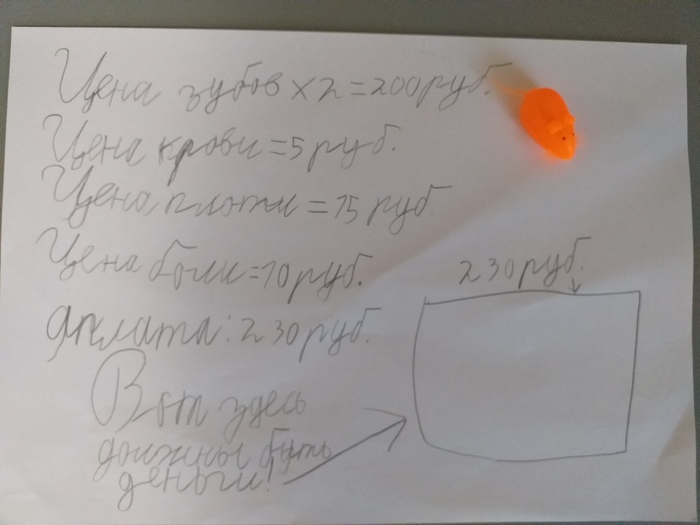 Цена зубов x2=200руб.
Цена крови=5руб.
Цена плоти=15руб
Цена боли=10руб.
230руб.
Оплата:230руб.
Вот здесь
должны быть
деньги!